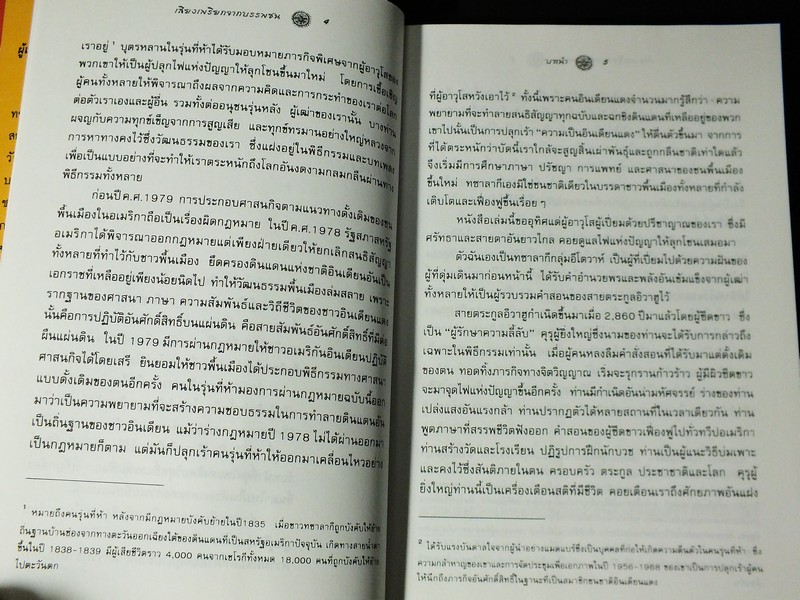 เสียงเพรียกจากบรรพชน 4
เราอยู่ 1 บุตรหลานในรุ่นที่ห้าได้รับมอบหมายภารกิจพิเศษจากผู้อาวุโสของ
พวกเขาให้เป็นผู้ปลุกไฟแห่งปัญญาให้ลุกโชนขึ้นมาใหม่ โดยการเชื้อเชิญ
ผู้คนทั้งหลายให้พิจารณาถึงผลจากความคิดและการกระทำของเราต่อโลก
ต่อตัวเราเองและผู้อื่น รวมทั้งต่ออนุชนรุ่นหลัง ผู้เฒ่าของเรานั้น บางท่าน
ผจญกับความทุกข์เข็ญจากการสูญเสีย และทุกข์ทรมานอย่างใหญ่หลวงจาก
การหาทางคงไว้ซึ่งวัฒนธรรมของเรา ซึ่งแฝงอยู่ในพิธีกรรมและบทเพลง
เพื่อเป็นแบบอย่างที่จะทำให้เราตระหนักถึงโลกอันงดงามกลมกลืนผ่านทาง
พิธีกรรมทั้งหลาย
ก่อนปี ค.ศ.1979 การประกอบศาสนกิจตามแนวทางดั้งเดิมของชน
พื้นเมืองในอเมริกาถือเป็นเรื่องผิดกฎหมาย ในปี ค.ศ.1978 รัฐสภาสหรัฐ
อเมริกาได้พิจารณาออกกฎหมายแต่เพียงฝ่ายเดียวให้ยกเลิกสนธิสัญญา
ทั้งหลายที่ทำไว้กับชาวพื้นเมือง ยึดครองดินแดนแห่งชาติอินเดียนอันเป็น
เอกราชที่เหลืออยู่เพียงน้อยนิดไป ทำให้วัฒนธรรมพื้นเมืองล่มสลาย เพราะ
รากฐานของศาสนา ภาษา ความสัมพันธ์และวิถีชีวิตของชาวอินเดียนแดง
นั้นคือการปฏิบัติอันศักดิ์สิทธิ์บนแผ่นดิน คือสายสัมพันธ์อันศักดิ์สิทธิ์ที่มีต่อ
ผืนแผ่นดิน ในปี 1979 มีการผ่านกฎหมายให้ชาวอเมริกันอินเดียนปฏิบัติ
ศาสนกิจได้โดยเสรี ยินยอมให้ชาวพื้นเมืองได้ประกอบพิธีกรรมทางศาสนา
แบบดั้งเดิมของตนอีกครั้ง คนในรุ่นที่ห้ามองการผ่านกฎหมายฉบับนี้ออก
มาว่าเป็นความพยายามที่จะสร้างความชอบธรรมในการทำลายดินแดนอัน
เป็นถิ่นฐานของชาวอินเดียน แม้ว่าร่างกฎหมายปี 1978 ไม่ได้ผ่านออกมา
เป็นกฎหมายก็ตาม แต่มันก็ปลุกเร้าคนรุ่นที่ห้าให้ออกมาเคลื่อนไหวอย่าง
1 หมายถึงคนรุ่นที่ห้า หลังจากมีกฎหมายบังคับย้ายในปี1835 เมื่อชาวทซาลากีถูกบังคับให้ย้าย
ถิ่นฐานบ้านช่องจากทางตะวันออกเฉียงใต้ของดินแดนที่เป็นสหรัฐอเมริกาปัจจุบัน เกิดทางสายน้ำตา
ขึ้นในปี 1838-1839 มีผู้เสียชีวิตราว 4,000 คนจากเชโรกีทั้งหมด 18,000 คนที่ถูกบังคับให้ย้าย
ไปตะวันตก
บทนำ 5
ที่ผู้อาวุโสหวังเอาไว้ 2 ทั้งนี้เพราะคนอินเดียนแดงจำนวนมากรู้สึกว่า ความ
พยายามที่จะทำลายสนธิสัญญาทุกฉบับและฉกชิงดินแดนที่เหลืออยู่ของพวก
เขาไปนั้นเป็นการปลุกเร้า “ความเป็นอินเดียนแดง” ให้ตื่นตัวขึ้นมา จากการ
ที่ได้ตระหนักว่าบัดนี้เราใกล้จะสูญสิ้นเผ่าพันธุ์และถูกกลืนชาติเท่าใดแล้ว
จึงเริ่มมีการศึกษาภาษา ปรัชญา การแพทย์ และศาสนาของชนพื้นเมือง
ขึ้นใหม่ ทซาลากีเองมิใช่ชนชาติเดียวในบรรดาชาวพื้นเมืองทั้งหลายที่กำลัง
เติบโตและเฟื่องฟูขึ้นเรื่อย ๆ
หนังสือเล่มนี้ขออุทิศแด่ผู้อาวุโสผู้เปี่ยมด้วยปรีชาญาณของเรา ซึ่งมี
ศรัทธาและสายตาอันยาวไกล คอยดูแลไฟแห่งปัญญาให้ลุกโชนเสมอมา
ตัวฉันเองเป็นทซาลากีกลุ่มอีโตวาห์ เป็นผู้ที่เปี่ยมไปด้วยความฝันของ
ผู้ที่ดุ่มเดินมาก่อนหน้านี้ ได้รับคำอำนวยพรและพลังอันเข้มแข็งจากผู้เฒ่า
ทั้งหลายให้เป็นผู้รวบรวมคำสอนของสายตระกูลอิวาฮูไว้
สายตระกูลอิวาฮูกำเนิดขึ้นมาเมื่อ 2,860 ปีมาแล้วโดยผู้ซีดขาว ซึ่ง
เป็น “ผู้รักษาความลี้ลับ” คุรุผู้ยิ่งใหญ่ซึ่งนามของท่านจะได้รับการกล่าวถึง
เฉพาะในพิธีกรรมเท่านั้น เมื่อผู้คนหลงลืมคำสั่งสอนที่ได้รับมาแต่ดั้งเดิม
ของตน ทอดทิ้งภารกิจทางจิตวิญญาณ เริ่มจะรุกรานก้าวร้าว ผู้มีผิวซีดขาว
จะมาจุดไฟแห่งปัญญาขึ้นอีกครั้ง ท่านมีกำเนิดอันน่ามหัศจรรย์ ร่างของท่าน
เปล่งแสงอันแรงกล้า ท่านปรากฏตัวได้หลายสถานที่ในเวลาเดียวกัน ท่าน
พูดภาษาที่สรรพชีวิตฟังออก คำสอนของผู้ซีดขาวเฟื่องฟูไปทั่วทวีปอเมริกา
ท่านสร้างวัดและโรงเรียน ปฏิรูปการฝึกนักบวช ท่านเป็นผู้แนะวิธีบ่มเพาะ
และคงไว้ซึ่งสันติภายในตน ครอบครัว ตระกูล ประชาชาติและโลก คุรุผู้
ยิ่งใหญ่ท่านนี้เป็นเครื่องเตือนสติที่มีชีวิต คอยเตือนเราถึงศักยภาพอันแฝง
2 ได้รับแรงบันดาลใจจากผู้นำอย่างแมดแบร์ซึ่งเป็นบุคคลที่ก่อให้เกิดความตื่นตัวในคนรุ่นที่ห้า ซึ่ง
ความกล้าหาญของเขาและการจัดประชุมเพื่อเอกภาพในปี 1956-1968 ของเขาเป็นการปลุกเร้าผู้คน
ให้นึกถึงภารกิจอันศักดิ์สิทธิ์ในฐานะที่เป็นสมาชิกชนชาติอินเดียนแดง